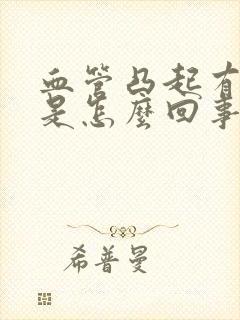 血管凸起有
是怎麼回事
希普曼